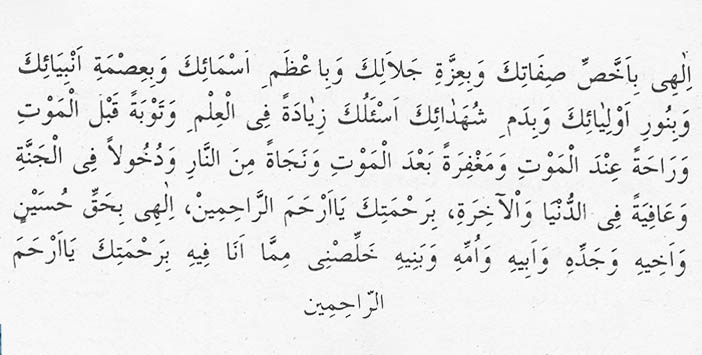 اِلٰهِى بِاَخَّصِّ صِفَاتِكَ وَبِعِزَّةِ جَلاَلِكَ وَبِاعْظَمِ اَسْمَائِكَ وَبِعِصْمَةِ اَنْبِيَائِكَ
وَبِنُورِ اَوْلِيٰائِكَ وَبِدَمِ شُهَدٰائِكَ اَسْئَلُكَ زِيٰادَةً فِى الْعِلْمِ وَتَوْبَةً قَبْلَ الْمَوْتِ
وَرَاحَةً عِنْدَ الْمَوْتِ وَمَغْفِرَةً بَعْدَ الْمَوْتِ وَنَجَاةً مِنَ النَّارِ وَدُخُولاً فِى الْجَنَّةِ
وَعَافِيَةً فِى الدُّنْيَا وَاْلآخِرَةِ، بِرَحْمَتِكَ يَااَرْحَمَ الرَّاحِمِينْ، اِلٰهِى بِحَقِّ حُسَيْنٍ
وَاَخِيهِ وَجَدِّهِ وَاَبِيهِ وَاُمِّهِ وَبَنِيهِ خَلِّصْنِى مِمَّا اَنَا فِيهِ بِرَحْمَتِكَ يَااَرْحَمَ
الرّاحِمِين